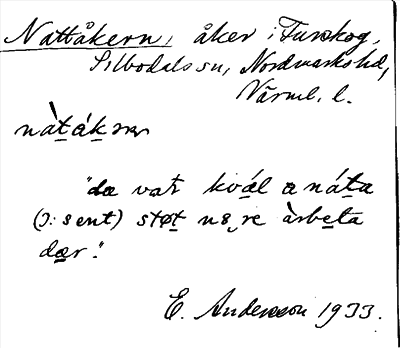 Nattåkern, åker i Turskog,
Silbodals sn, Nordmarks hd,
Värml. l.
nàt̲ák̲
"dæ vat̲ kvǽl a nát̲a
(ɔ: sent) støt̲ nɜ̯re àrbet̲a
dær."
E. Andersson 1933.